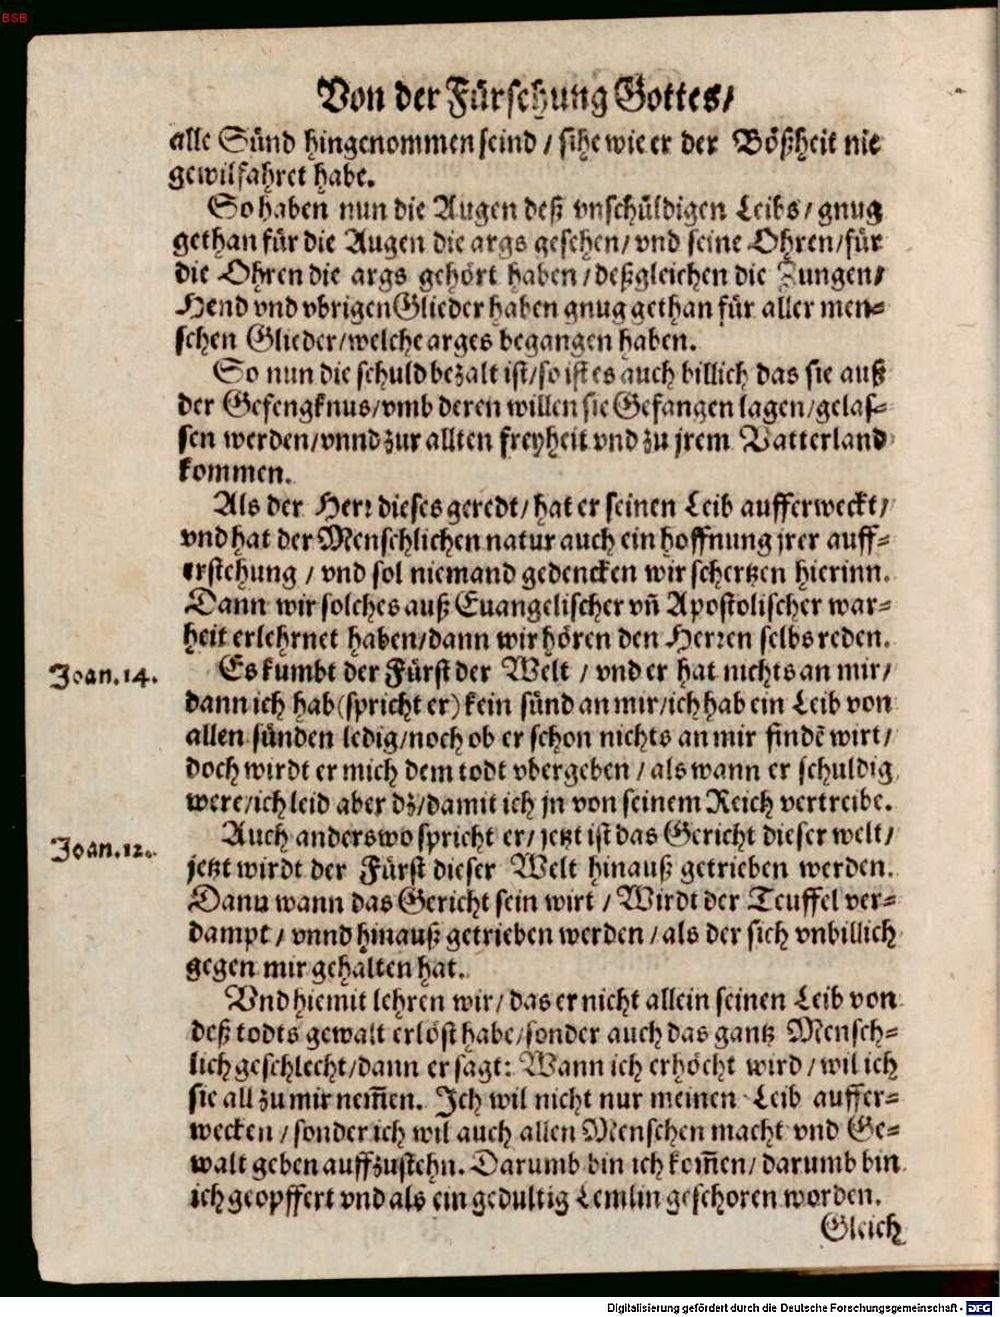 BSB
Von der Fürsehung Gottes/
alle Sünd hingenommen seind / sihe wie er der Bößheit nie
gewilfahret habe.
So haben nun die Augen deß vnschüldigen Leibs/ gnug
gethan für die Augen die args gesehen/ vnd seine Ohren/ für
die Ohren die args gehört haben / deßgleichen die Zungen/
Hend vnd vbrigen Glieder haben gnug gethan für aller men⸗
schen Glieder/welche arges begangen haben.
So nun die schuld bezalt ist/ so ist es auch billich das sie auß
der Gefengknus/vmb deren willen sie Gefangen lagen/gelas⸗
sen werden/vnnd zur allten freyheit vnd zu jrem Vatterland
kommen.
Als der Herr dieses geredt/ hat er seinen Leib aufferweckt/
vnd hat der Menschlichen natur auch ein hoffnung jrer auff⸗
erstehung / vnd sol niemand gedencken wir schertzen hierinn.
Dann wir solches auß Euangelischer vñ Apostolischer war⸗
heit erlehrnet haben/dann wir hören den Herren selbs reden.
Joan.14. Es kumbt der Fürst der Welt / vnd er hat nichts an mir/
dann ich hab (spricht er) kein sünd an mir/ich hab ein Leib von
allen sünden ledig/noch ob er schon nichts an mir findẽ wirt/
doch wirdt er mich dem todt vbergeben / als wann er schuldig
were/ich leid aber dz/damit ich jn von seinem Reich vertreibe.
Joan.12. Auch anderswo spricht er/ jetzt ist das Gericht dieser welt/
jetzt wirdt der Fürst dieser Welt hinauß getrieben werden.
Dann wann das Gericht sein wirt / Wirdt der Teuffel ver⸗
dampt / vnnd hinauß getrieben werden / als der sich vnbillich
gegen mir gehalten hat.
Vnd hiemit lehren wir/ das er nicht allein seinen Leib von
deß todts gewalt erlöst habe/sonder auch das gantz Mensch⸗
lich geschlecht/dann er sagt: Wann ich erhöcht wird / wil ich
sie all zu mir nem̃en. Ich wil nicht nur meinen Leib auffer⸗
wecken / sonder ich wil auch allen Menschen macht vnd Ge⸗
walt geben auffzustehn. Darumb bin ich kom̃en/ darumb bin
ich geopffert vnd als ein gedultig Lemlin geschoren worden.
Gleich
Digitalisierung gefördert durch die Deutsche Forschungsgemeinschaft - DFG